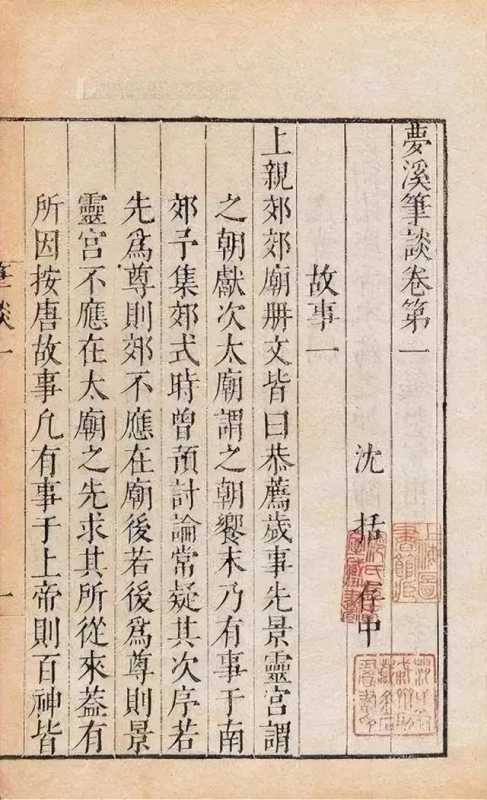 夢溪筆談卷第一
沈 括 存中
故事一
上親郊郊廟冊文皆曰恭薦歲事先景靈宮謂
之朝獻次太廟謂之朝饗末乃有事于南
郊予集郊式時曾預討論常疑其次序若
先爲尊則郊不應在廟後若後爲尊則景
靈宮不應在太廟之先求其所從來蓋有
所因按唐故事凡有事于上帝則百神皆
筆談一
一
上海圖書館藏